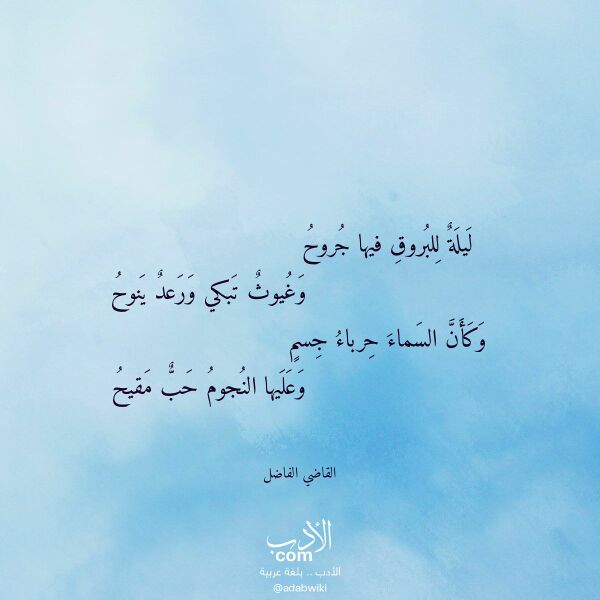 لَيلَةٌ لِلبُروقِ فيها جُروحُ
وَغُيوثٌ تَبكي وَرَعدٌ يَنوحُ
وَكَأَنَّ السَماءَ حِرباءُ جِسمٍ
وَعَلَيها النُجومُ حَبٌّ مَقيحُ
القاضي الفاضل
الأدب
com
الأدب .. بلغة عربية
@adabwiki